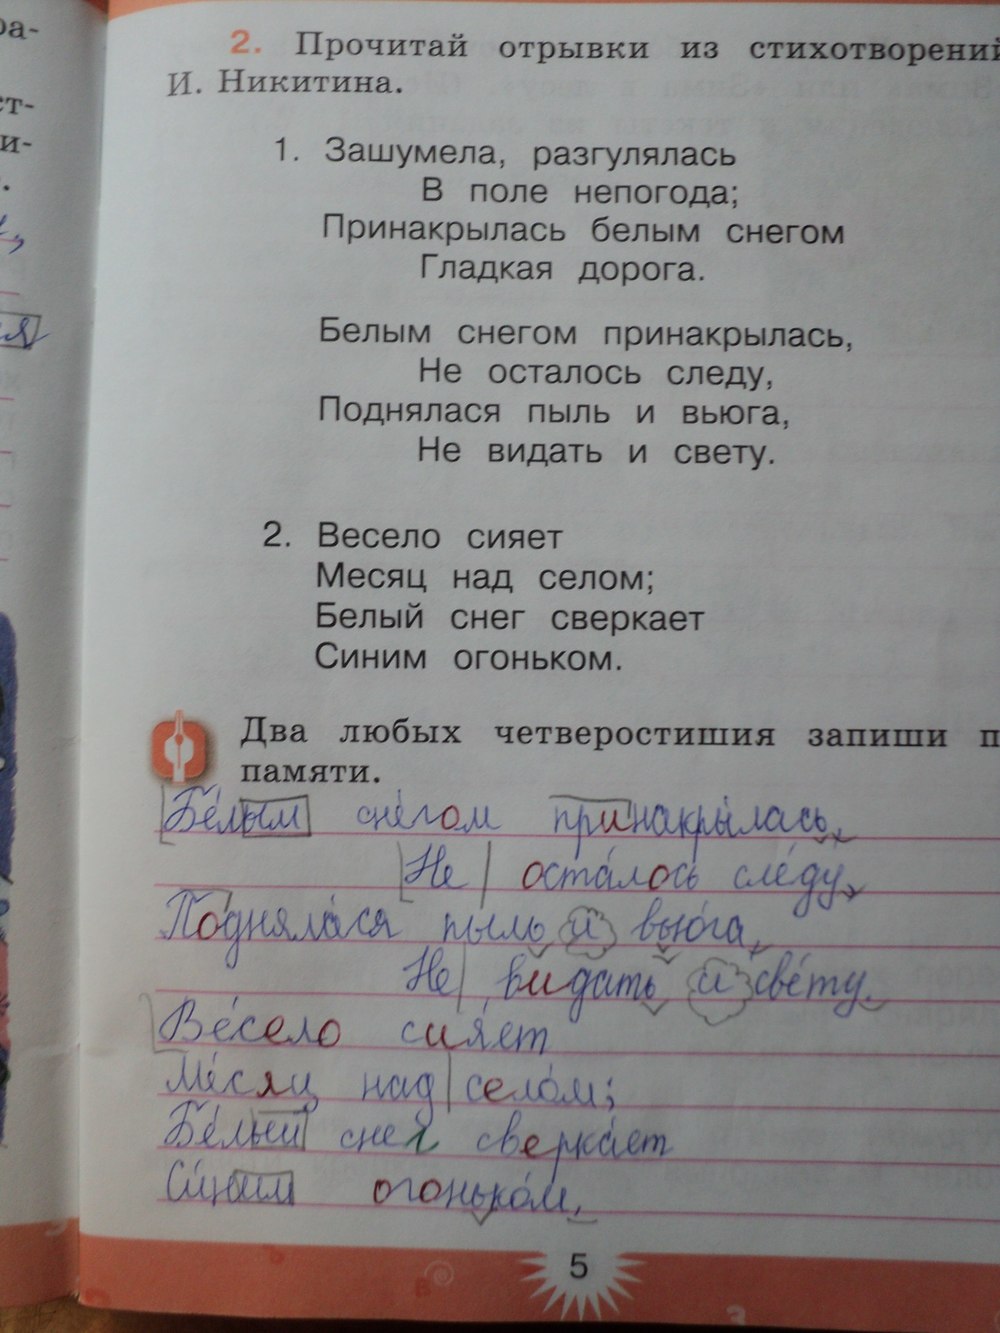 ра-
ст-
и-
2. Прочитай отрывки из стихотворений
И. Никитина.
1. Зашумела, разгулялась
В поле непогода;
Принакрылась белым снегом
Гладкая дорога.
Белым снегом принакрылась,
Не осталось следу,
Поднялася пыль и вьюга,
Не видать и свету.
2. Весело сияет
Месяц над селом;
Белый снег сверкает
Синим огоньком.
Два любых четверостишия запиши п
памяти.
Белым снегом принакрылась,
Не осталось следу,
Поднялася пыль и вьюга,
Не видать и свету.
Весело сияет
Месяц над селом;
Белый снег сверкает
Синим огоньком.
5